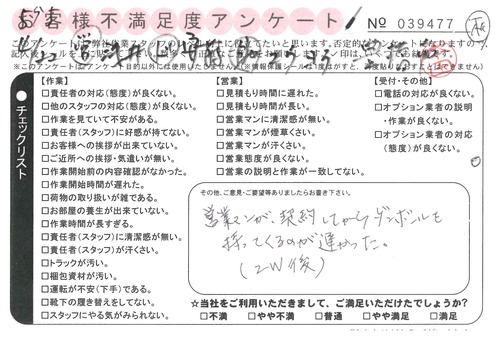 お客様不満足度アンケート
No 039477
このアンケートは弊社作業スタッフの
※このアンケートはアンケート目的以外には使用いたしません
チェックリスト
【作業】
□責任者の対応(態度)が良くない。
□他のスタッフの対応(態度)が良くない。
□作業を見ていて不安がある。
□責任者(スタッフ)に好感が持てない。
□お客様への挨拶が出来ていない。
□ご近所への挨拶・気遣いが無い。
□作業開始前の内容確認がなかった。
□作業開始時間が遅れた。
□荷物の取り扱いが雑である。
□お部屋の養生が出来ていない。
□作業時間が長すぎる。
□責任者(スタッフ)に清潔感が無い。
□責任者(スタッフ)が汗くさい。
□トラックが汚い。
□梱包資材が汚い。
□運転が不安(下手)である。
□靴下の履き替えをしてない。
□スタッフにやる気がみられない。
【営業】
□見積もり時間に遅れた。
□見積もり時間が長い。
□営業マンに清潔感が無い。
□営業マンが煙草くさい。
□営業マンが汗くさい。
□営業態度が良くない。
□営業の説明と作業が一致してない。
【受付・その他】
□電話の対応が良くない。
□オプション業者の説明
・作業が良くない。
□オプション業者の対応
(態度)が良くない。
その他、ご意見・ご要望等ありましたらお書き下さい。
営業マンが、契約してからダンボールを
持ってくるのが遅かった。
(2W後)
☆当社をご利用いただきまして、ご満足いただけたでしょうか?
□不満 □やや不満 □普通 □やや満足 □満足